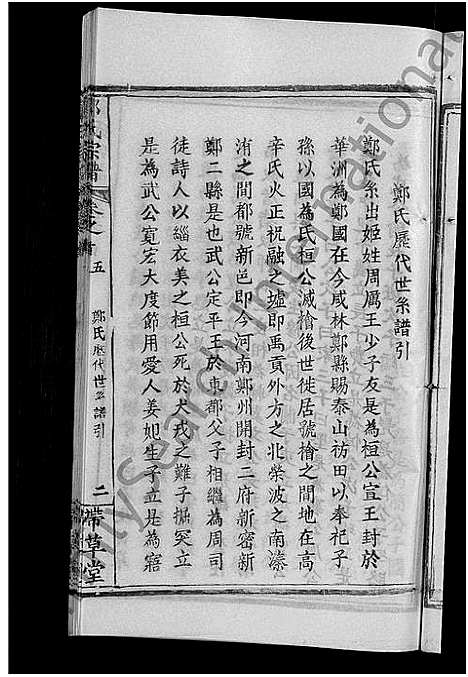 鄭氏歷代世系譜引
鄭氏系出姬姓周厲王少子友是為桓公宣王封於
華洲為鄭國在今咸林鄭縣賜泰山祊田以奉祀子
孫以國為氏桓公滅檜後世徙居號檜之間地在高
辛氏火正祝融之墟即禹貢外方之北滎波之南溱
洧之間都號新邑即今河南鄭州開封二府新密新
鄭二縣是也武公定平王於東都父子相繼為周司
徒詩人以緇衣美之桓公死於犬戎之難子掘突立
是為武公寬宏大度節用愛人姜妃生子立是為寤
氏宗譜
卷之首
五
鄭氏歷代世系譜引
二
帶草堂
International